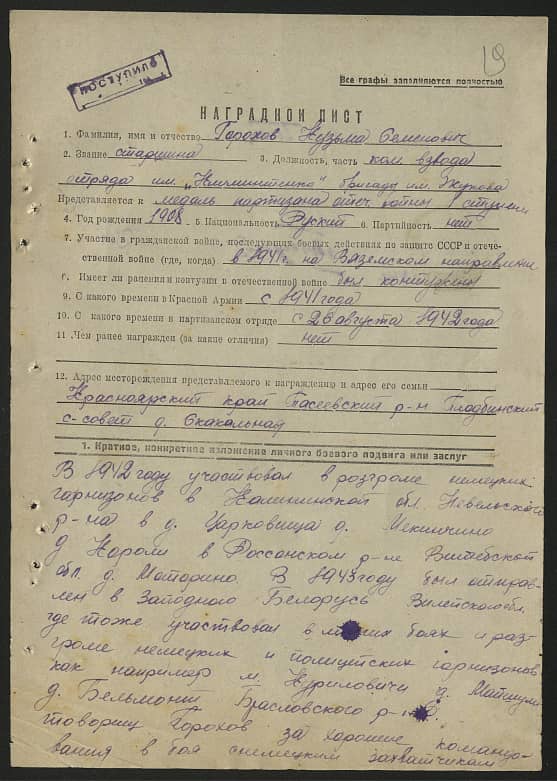 19
ПОСТУПИЛО
Все графы заполняются полностью
НАГРАДНОЙ ЛИСТ
1. Фамилия, имя и отчество Горохов Кузьма Семенович
2. Звание старшина 3. Должность, часть ком взвода
отряда им. бригады им. Жукова
Представляется к медаль партизана отеч. войны II ступени
4. Год рождения 1908 5. Национальность Руский 6. Партийность нет
7. Участие в гражданской войне, последующих боевых действиях по защите СССР и отече-
ственной войне (где, когда) в 1941г. на Вяземском направлении
8. Имеет ли ранения и контузии в отечественной войне был контужены
9. С какого времени в Красной Армии с 1941 года
10. С какого времени в партизанском отряде с 26 августа 1942 года
11. Чем ранее награжден (за какие отличия) нет
12. Адрес месторождения представляемого к награждению и адрес его семьи
Красноярский край Тасеевский р-н Глодбинский
с-совет д. Скакальная
1. Краткое, конкретное изложение личного боевого подвига или заслуг
В 1942 году участвовал в розгроме немецких
гарнизонов в Калининской обл. Невельского
р-на в д. Чарковища д.
д Короли в Россонском р-не Витебской
обл. д. Моторино. В 1943 году был отправ-
лен в Западного Белорусь Вилейской обл.
где тоже участвовал в боях и раз-
громе немецких и полицейских гарнизонов
как например м. Куриловичи д.
д. Бельмонти Брасловского р-на.
товорищ Горохов за хорошие командо-
вания в боя снемецким захватчикам